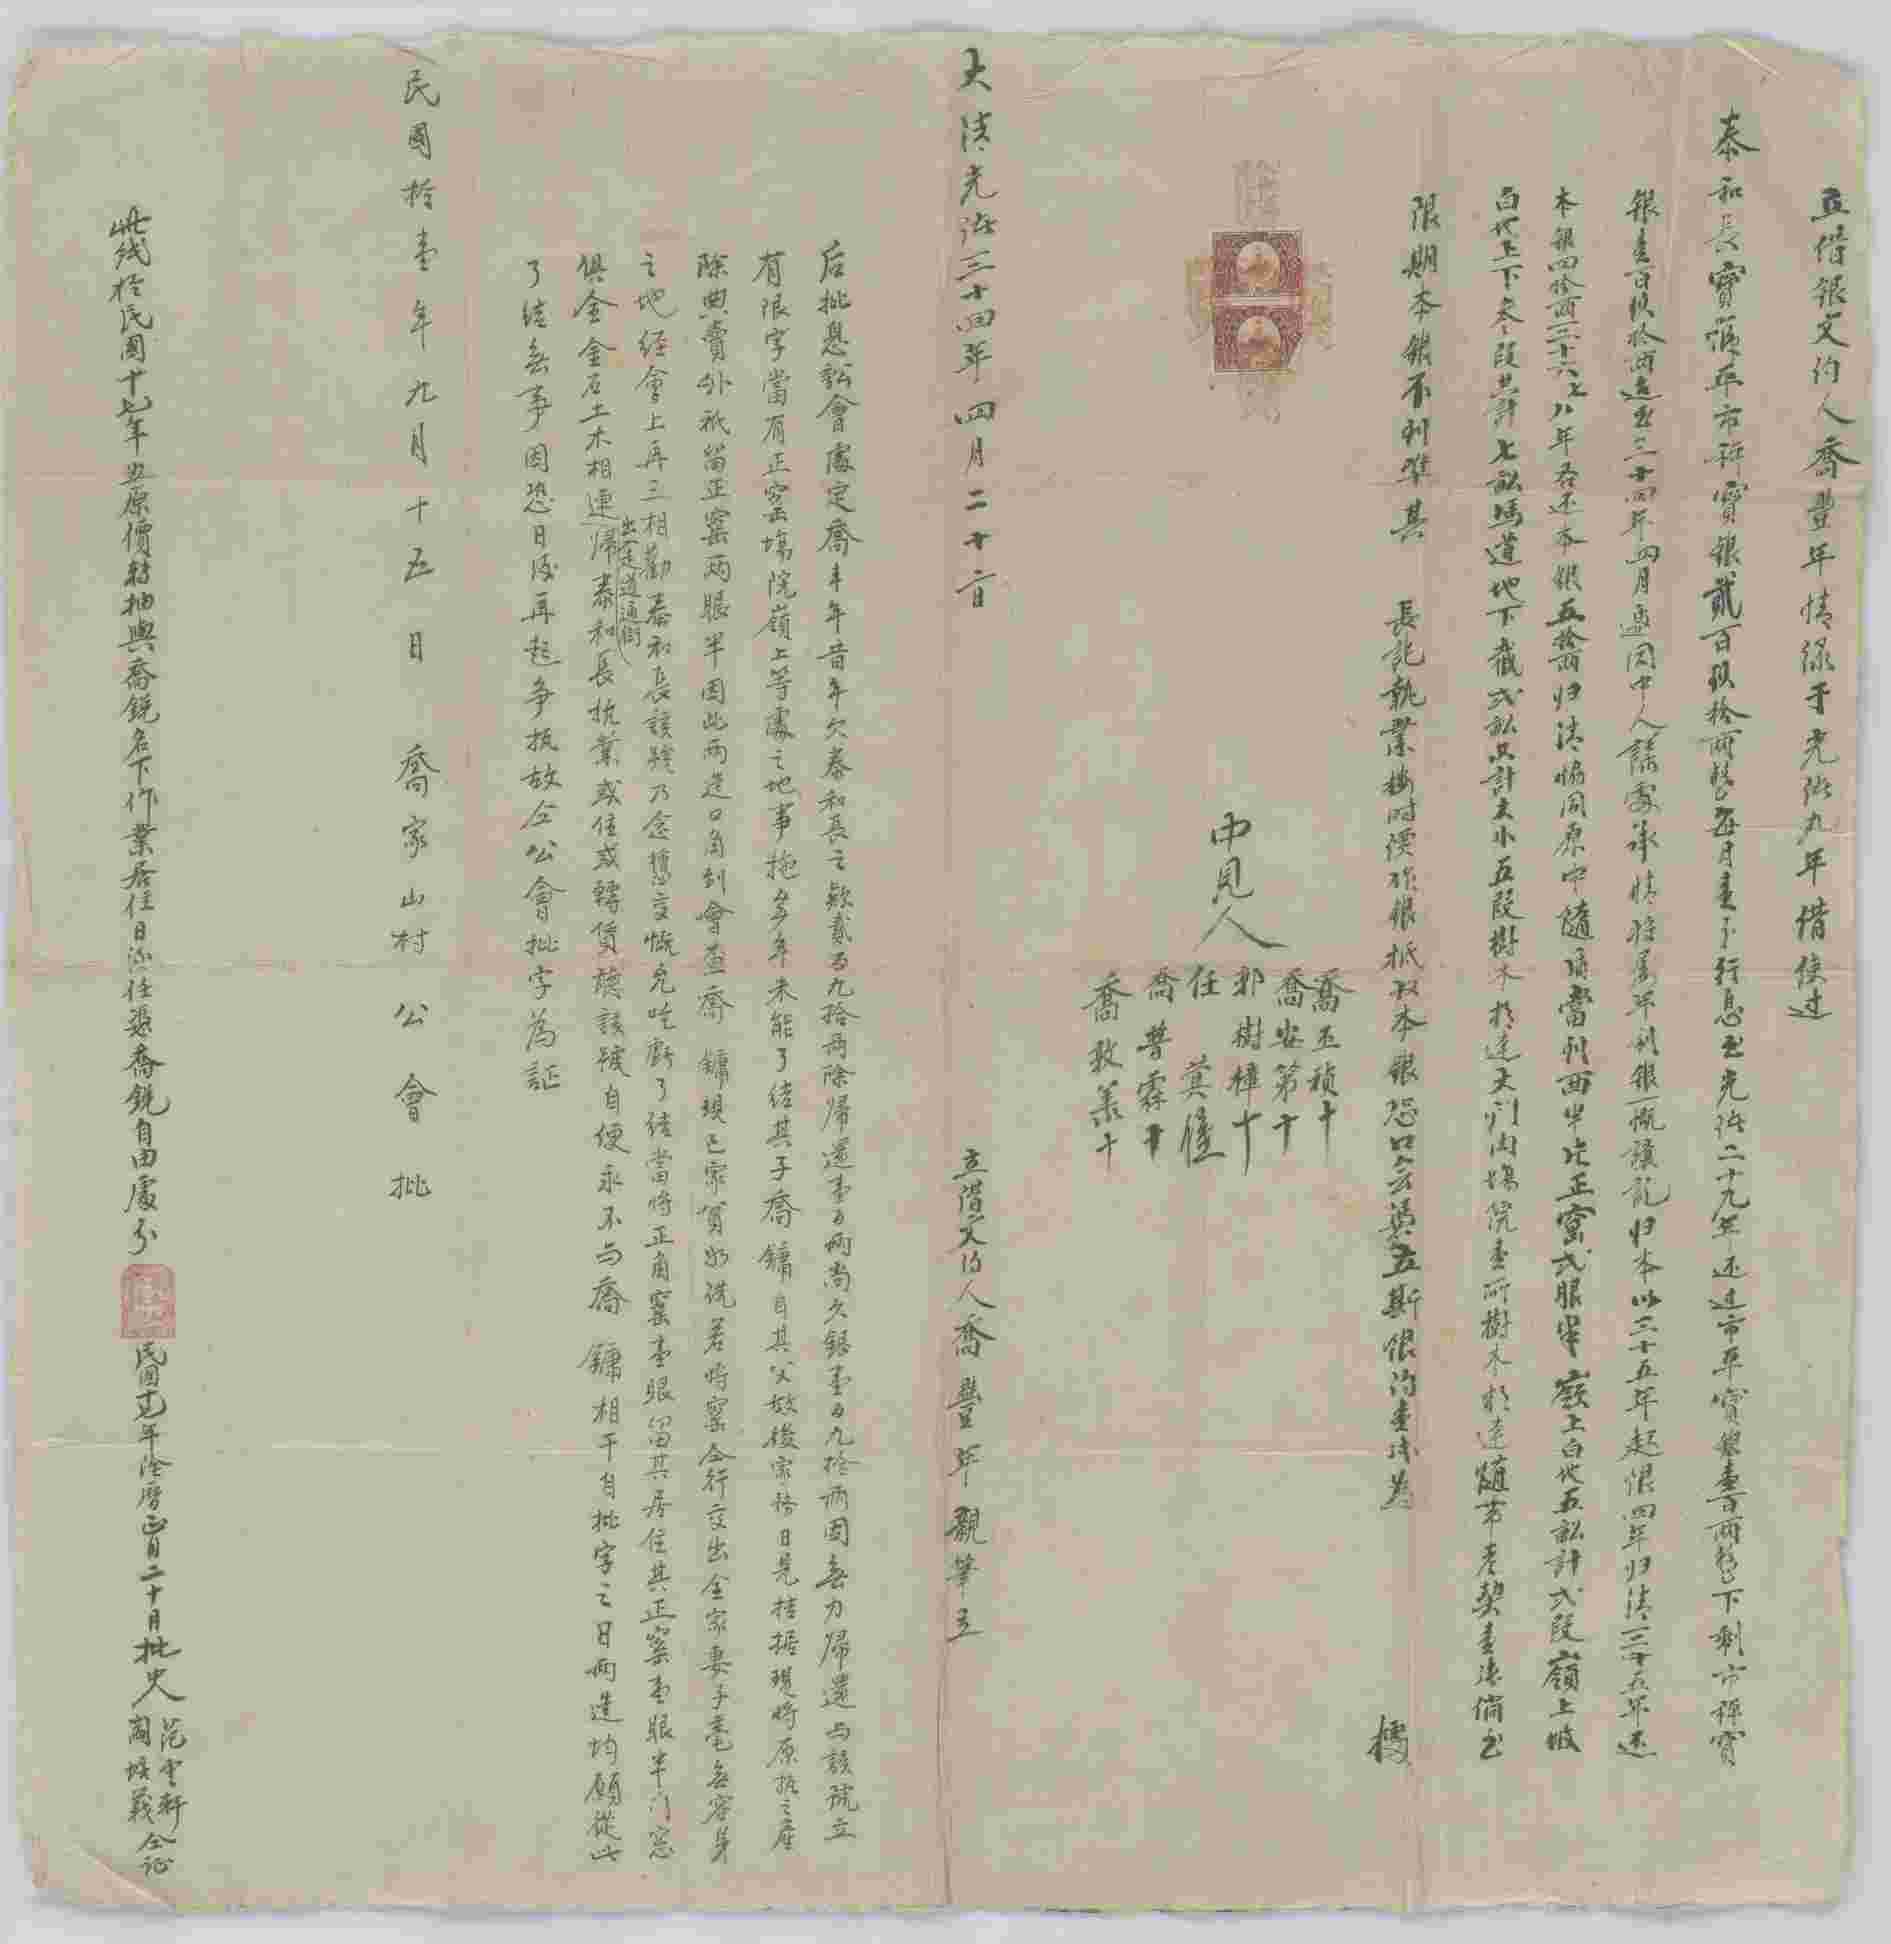 立借銀文約人喬豊年情緣于光緒九年借使过
泰和長寶蔴平市𥘵寶銀貳百玖拾兩整每月壹分行息至光緒二十九年还过市平寶銀壹百兩整下剩市𥘵寶
銀壹百玖拾兩迨至三十四年四月邀同中人說處承情將屢年利銀一概讓訖归本以三十五年起限四年归清三十五年还
本銀四拾兩三十六七八年各还本銀五拾兩归清恊同原中隨項當到西半北正窑弍眼半嶺上白地五畝計弍段嶺上坡
白地上下叁段共計七畝馬道地下截弍畝共計大小五段樹木相連大門内塲院壹所樹木相連隨带老契壹張倘至
限期本銀不到準其 長記執業按时價作銀抵収本銀恐口無憑立斯借約壹張为
據
中見人
喬丕禎十
喬安第十
郭樹樟十
任 蓂
喬普霖十
喬敦業十
大清光緒三十四年四月二十日
立借文約人喬豊年親筆立
后批息訟會處定喬丰年昔年欠泰和長之欵貳百九拾兩除歸還壹百兩尚欠銀壹百九拾兩因無力歸還与該號立
有限字當有正窑塲院嶺上等處之地事拖多年未能了結其子喬 鏞自其父故後家務日見拮据現將原抵之產
除典賣外祇留正窯两眼半因此两造口角到會查喬 鏞現已家貧如洗若將窯全行交出全家妻子毫無容身
之地經會上再三相勸泰和長該號乃念舊交慨允吃虧了結當將正角窯壹眼留其居住其正窯壹眼半门窓
俱全金石土木相連出走道通街歸泰和長执業或住或轉賃讓該號自便永不与喬 鏞相干自批字之日两造均願從此
了結無事因恐日後再起争執故仝公會批字為証
民國拾壹年九月十五日 喬家山村公會 批
此幾於民國十七年並原價转抽與喬銳名下作業居住日後任凴喬銳自由處分
民國十七年陰曆正月二十日批
范雲軒
閻塔義
仝证